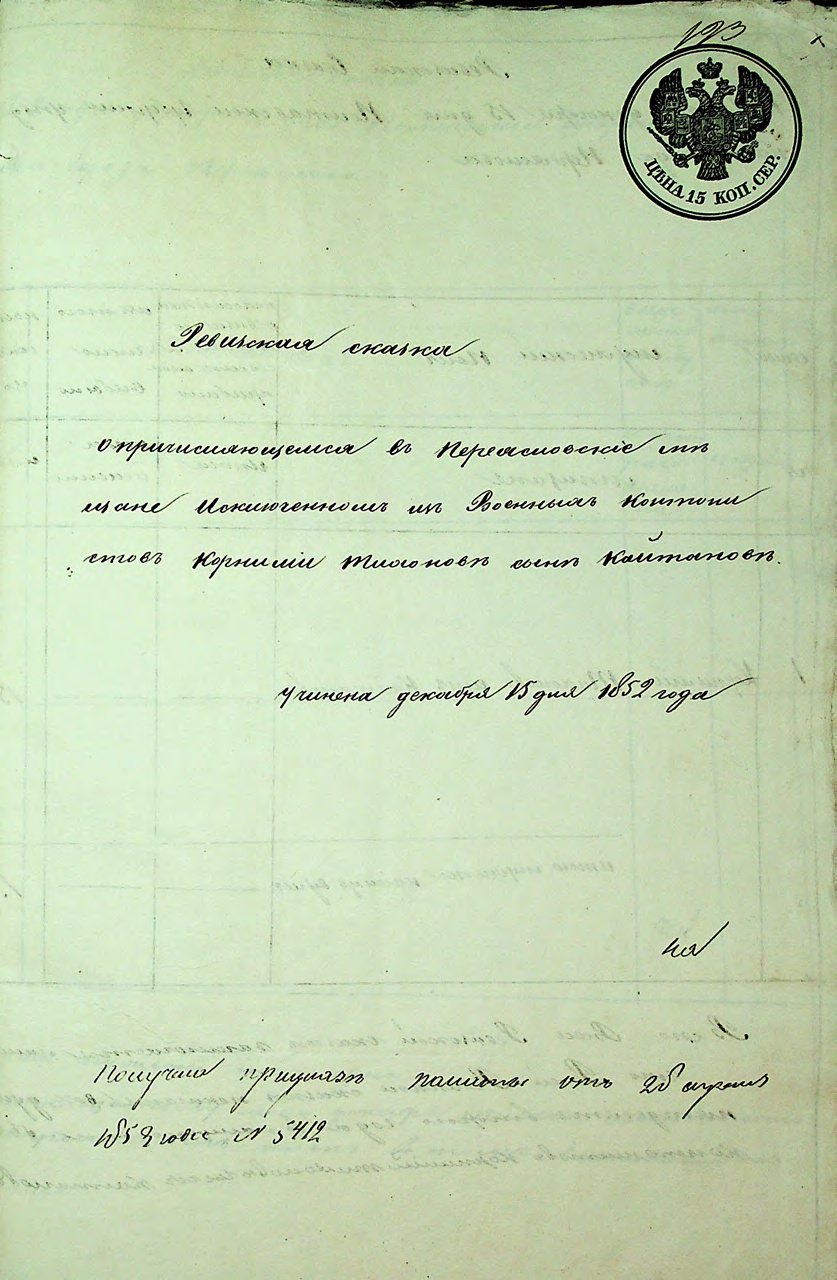 193
ЦѢНА 15 КОП. СЕР.
Ревизская сказка
о причисляющемся въ Переясловскіе мѣ
щане Исключенномъ изъ Военныхъ Контони
стовъ Корнилій Тихоновъ сынъ Койтановъ.
Учинена декабря 15 дня 1852 года
на
Получена приуказъ палаты отъ 28 апреля
1853 года N 5412